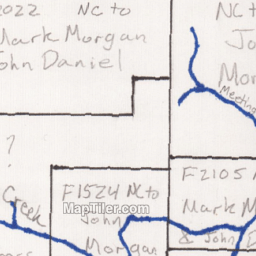 2022 NC to
Mark Morgan
John Daniel
NC t
Jo
Mor
Meeting
?
Creek
F1524 NC to
John
Morgan
F2105 N
Mark M
& John D
MapTiler.com